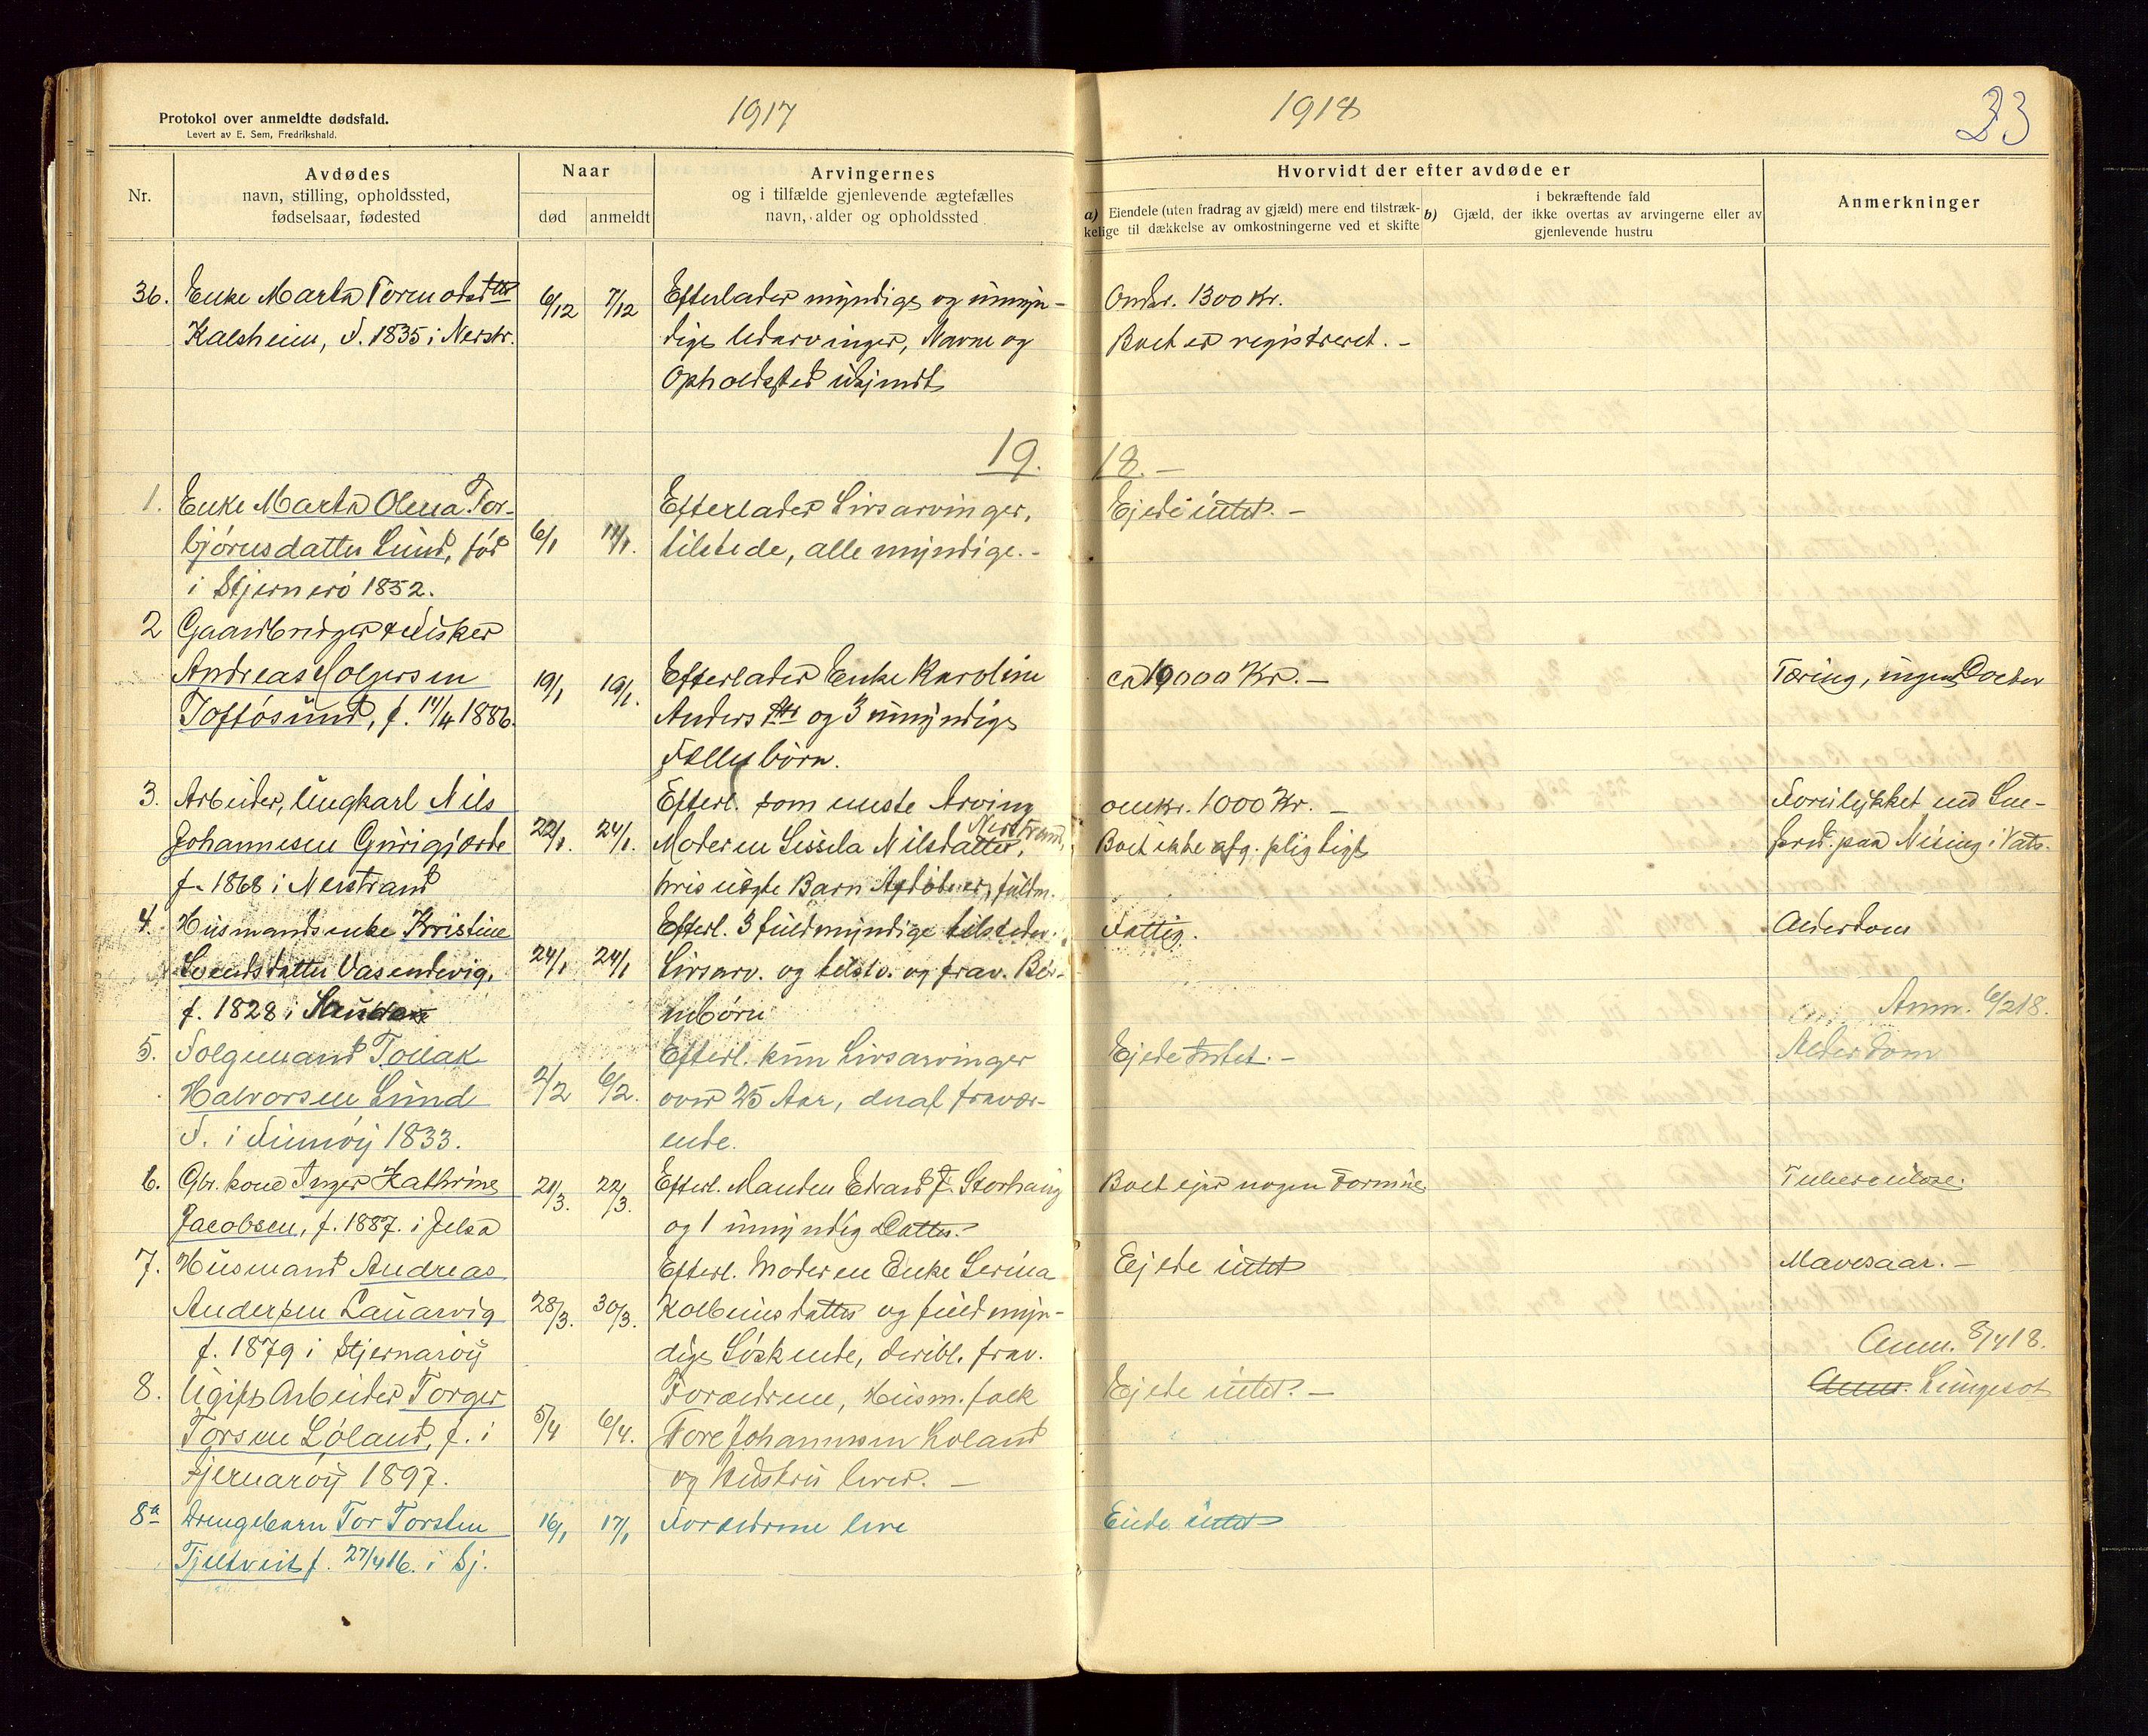 1917
1918
33
Protokol over anmeldte dødsfald.
Levert av E. Sem, Fredrikshald.
Nr.
Avdødes
navn, stilling, opholdssted,
fødselsaar, fødested
Naar
død
anmeldt
Arvingernes
og i tilfælde gjenlevende ægtefælles
navn, alder og opholdssted
Hvorvidt der efter avdøde er
a) Eiendele (uten fradrag av gjæld) mere end tilstræk-
kelige til dækkelse av omkostningerne ved et skifte
i bekræftende fald
b) Gjæld, der ikke overtas av arvingerne eller av
gjenlevende hustru
Anmerkninger
36. Enke Marta Tormodsdtr 6/12 7/12 Efterlader myndige og umyn- Omkr. 1300 Kr.
Kalsheim, F. 1835 i Nerstr. dige Udarvinger, Navne og Boet er registreret. -
Opholdsted ukjendt
19. 18. -
1. Enke Marta Olena Tor- Efterlader Livsarvinger, Ejede intet. -
bjørnsdatter Lund, fød 6/1 11/1. tilstede, alle myndige. -
i Stjernerø 1852.
2 Gaardbruger & Fisker
Andreas Holgersen 19/1 19/1. Efterlader Enke Karoline ca 10000 Kr. - Tæring, ingen Doctor
Toftøsund, f. 14/4 1886. Anders dtr og 3 umyndige
Fællesbørn.
3. Arbeider, ungkarl Nils Efterl. som eneste Arving omkr. 1000 Kr. - Forulykket ved Sne-
Johannesen Gurigjærde 22/1. 24/1. Moderen Sissela Nilsdatter, Nerstrand, Boet ikke afg. pligtigt skred. paa Nising i Vats.
f. 1868 i Nerstrand hvis uægte Barn Afdøde er, fuldm.
4. Husmandsenke Kristine Efterl. 3 fuldmyndige tilstedev. Fattig. Alderdom
Svendsdatter Vasendvig, 24/1 24/1 Livsarv. og tilstv. og frav. Bør-
f. 1828 i nebørn Anm. 6/2 18.
5. Følgemand Tollak Efterl. kun Livsarvinger Ejede Intet. - Alderdom
Halvorsen Lund 2/2 6/2. over 25 Aar, deraf fravær-
F. i Finnøy 1833. ende.
6. Gbr. kone Inger Kathrine 21/3. 22/3. Efterl. Manden Edvard F. Storhaug Boet ejer nogen Formue Tuberculose.
Jacobsen, f. 1887. i Jelsa og 1 umyndig Datter.
7. Husmand Andreas Efterl. Moderen Enke Serina Ejede intet Mavesaar. -
Andersen Lauarvig 28/3. 30/3. Kolbeinsdatter og fuldmyn-
f. 1879 i Stjernarøy dige Søskende, deribl. frav. Anm. 8/4 18.
8. Ugift Arbeider Torger Forældrene, Husm. folk Ejede intet. - Anm. Lungesot
Torsen Løland, f. i 5/4 6/4. Tore Johannesen Løland
Sjernarøy 1897. og Hustru lever. -
8a Drengebarn Tor Torsten 16/1 17/1 Forældrene leve Eiede intet
Tjeltveit f. 27/4 16. i Sj.